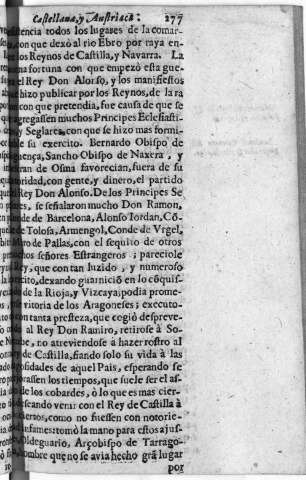 Castellana, y Austriaca. 277
tencia todos los lugares de la comar-
con que dexò al rio Ebro por raya en-
los Reynos de Castilla, y Navarra. La
na fortuna con que empezò esta gue-
el Rey Don Alonso, y los manifiestos
hizo publicar por los Reynos, de la ra
con que pretendia, fue causa de que se
gregassen muchos Principes Eclesiasti-
y Seglares, con que se hizo mas formi-
le su exercito. Bernardo Obispo de
guença, Sancho Obispo de Naxera, y
ran de Osma favorecian, fuera de su
oridad, con gente, y dinero, el partido
Rey Don Alonso. De los Principes Se
es, se señalaron mucho Don Ramon,
de de Barcelona, Alonso Iordan, Cō-
de Tolosa, Armengol, Conde de Vrgel,
Miro de Pallas, con el sequito de otros
chos señores Estrangeros; pareciole
Rey, que con tan luzido, y numeroso
cito, dexando guarniciō en lo cōquis-
de la Rioja, y Vizcaya, podia prome-
vitoria de los Aragoneses; executo-
con tanta presteza, que cogiò despreve-
al Rey Don Ramiro, retiròse à So-
be, no atreviendose à hazer rostro al
y de Castilla, fiando solo su vida à las
osidades de aquel Pais, esperando se
orassen los tiempos, que suele ser el as-
de los cobardes, ò lo que es mas cier-
seando venir con el Rey de Castilla à
ciertos, como no fuessen con notorie-
infames: tomò la mano para estos ajus-
Oldeguario, Arçobispo de Tarrago-
hombre que no se avia hecho grā lugar
por